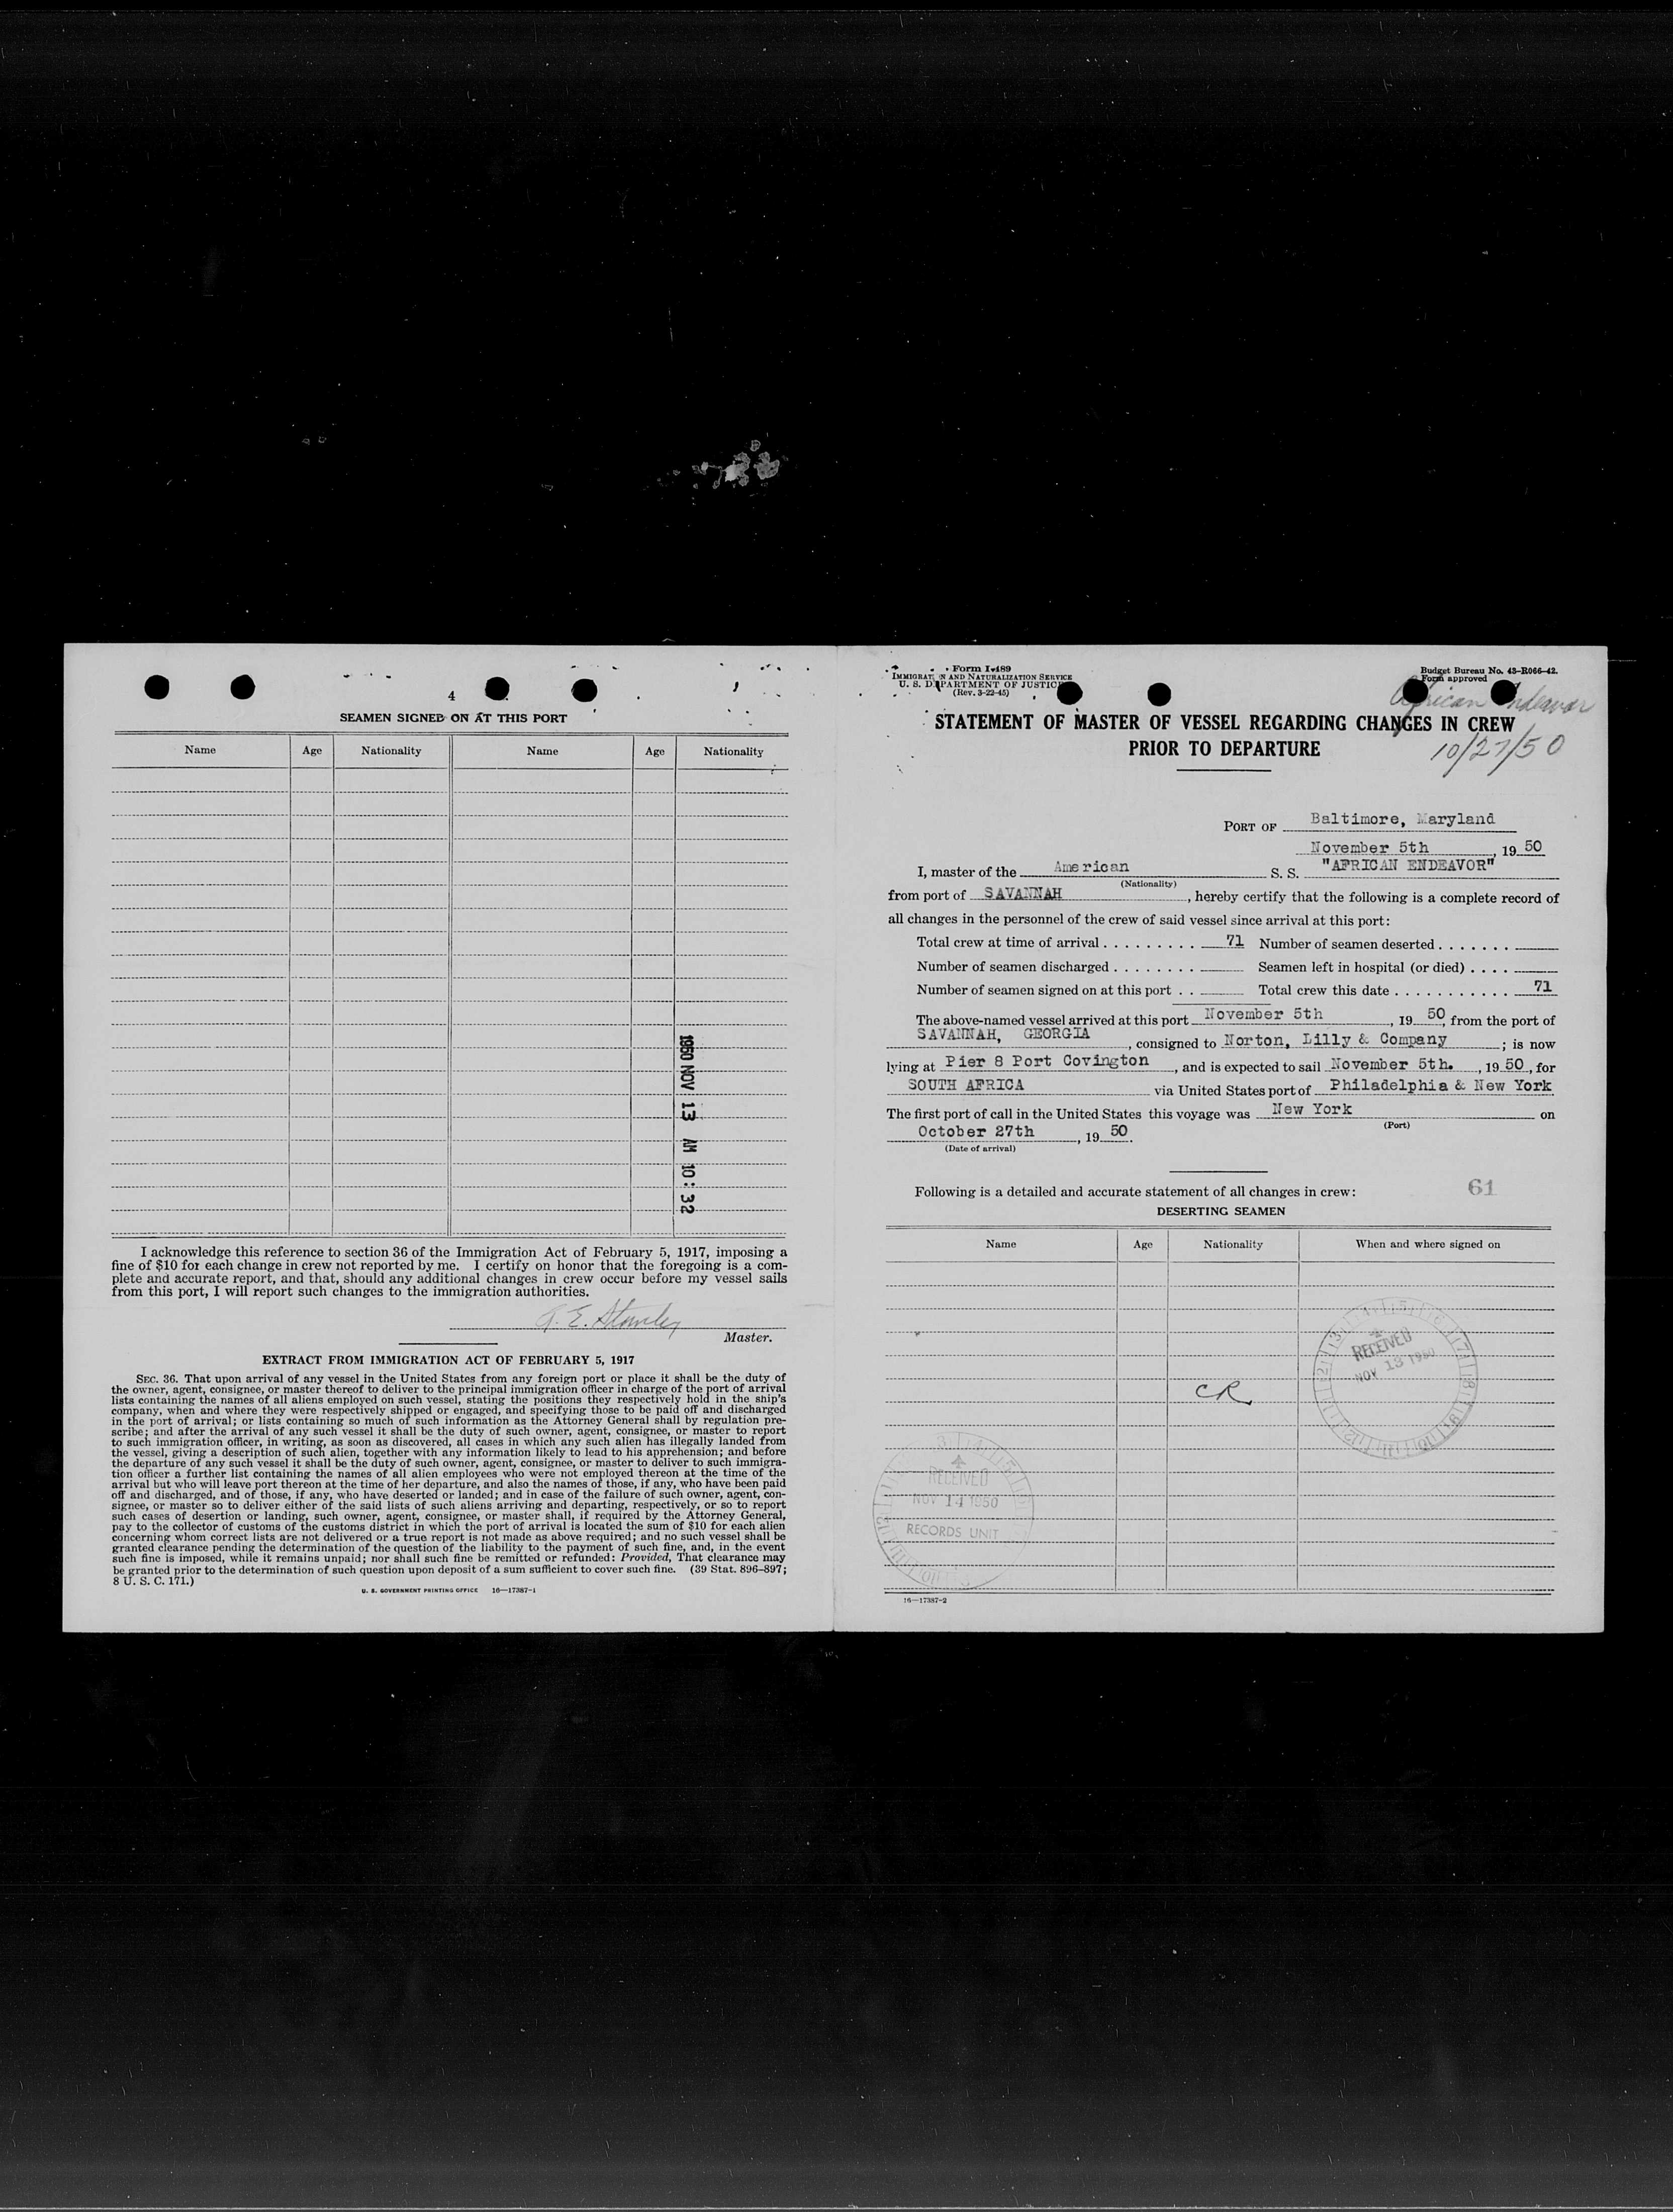 4
SEAMEN SIGNED ON AT THIS PORT
Name Age Nationality Name Age Nationality
1950 NOV 13 AM 10:32
I acknowledge this reference to section 36 of the Immigration Act of February 5, 1917, imposing a
fine of $10 for each change in crew not reported by me. I certify on honor that the foregoing is a com-
plete and accurate report, and that, should any additional changes in crew occur before my vessel sails
from this port, I will report such changes to the immigration authorities.
E. Stanley
Master.
EXTRACT FROM IMMIGRATION ACT OF FEBRUARY 5, 1917
SEC. 36. That upon arrival of any vessel in the United States from any foreign port or place it shall be the duty of
the owner, agent, consignee, or master thereof to deliver to the principal immigration officer in charge of the port of arrival
lists containing the names of all aliens employed on such vessel, stating the positions they respectively hold in the ship's
company, when and where they were respectively shipped or engaged, and specifying those to be paid off and discharged
in the port of arrival; or lists containing so much of such information as the Attorney General shall by regulation pre-
scribe; and after the arrival of any such vessel it shall be the duty of such owner, agent, consignee, or master to report
to such immigration officer, in writing, as soon as discovered, all cases in which any such alien has illegally landed from
the vessel, giving a description of such alien, together with any information likely to lead to his apprehension; and before
the departure of any such vessel it shall be the duty of such owner, agent, consignee, or master to deliver to such immigra-
tion officer a further list containing the names of all alien employees who were not employed thereon at the time of the
arrival but who will leave port thereon at the time of her departure, and also the names of those, if any, who have been paid
off and discharged, and of those, if any, who have deserted or landed; and in case of the failure of such owner, agent, con-
signee, or master so to deliver either of the said lists of such aliens arriving and departing, respectively, or so to report
such cases of desertion or landing, such owner, agent, consignee, or master shall, if required by the Attorney General,
pay to the collector of customs of the customs district in which the port of arrival is located the sum of $10 for each alien
concerning whom correct lists are not delivered or a true report is not made as above required; and no such vessel shall be
granted clearance pending the determination of the question of the liability to the payment of such fine, and, in the event
such fine is imposed, while it remains unpaid; nor shall such fine be remitted or refunded: Provided, That clearance may
be granted prior to the determination of such question upon deposit of a sum sufficient to cover such fine. (39 Stat. 896-897;
8 U. S. C. 171.)
U. S. GOVERNMENT PRINTING OFFICE 16—17387-1
Form I-489
IMMIGRATION AND NATURALIZATION SERVICE
U. S. DEPARTMENT OF JUSTICE
(Rev. 3-22-45)
Budget Bureau No. 43-R066-42.
Form approved
African Endeavor
10/27/50
STATEMENT OF MASTER OF VESSEL REGARDING CHANGES IN CREW
PRIOR TO DEPARTURE
PORT OF Baltimore, Maryland
November 5th, 19 50
I, master of the American S. S. "AFRICAN ENDEAVOR"
(Nationality)
from port of SAVANNAH, hereby certify that the following is a complete record of
all changes in the personnel of the crew of said vessel since arrival at this port:
Total crew at time of arrival . . . . . . . . . 71 Number of seamen deserted . . . . . . .
Number of seamen discharged . . . . . . . . Seamen left in hospital (or died) . . . .
Number of seamen signed on at this port . . Total crew this date . . . . . . . . . . . 71
The above-named vessel arrived at this port November 5th, 19 50, from the port of
SAVANNAH, GEORGIA, consigned to Norton, Lilly & Company; is now
lying at Pier 8 Port Covington, and is expected to sail November 5th., 19 50, for
SOUTH AFRICA via United States port of Philadelphia & New York
The first port of call in the United States this voyage was New York on
(Port)
October 27th, 19 50.
(Date of arrival)
Following is a detailed and accurate statement of all changes in crew: 61
DESERTING SEAMEN
Name Age Nationality When and where signed on
RECEIVED
NOV 13 1950
CR
RECEIVED
NOV 14 1950
RECORDS UNIT
16—17387-2